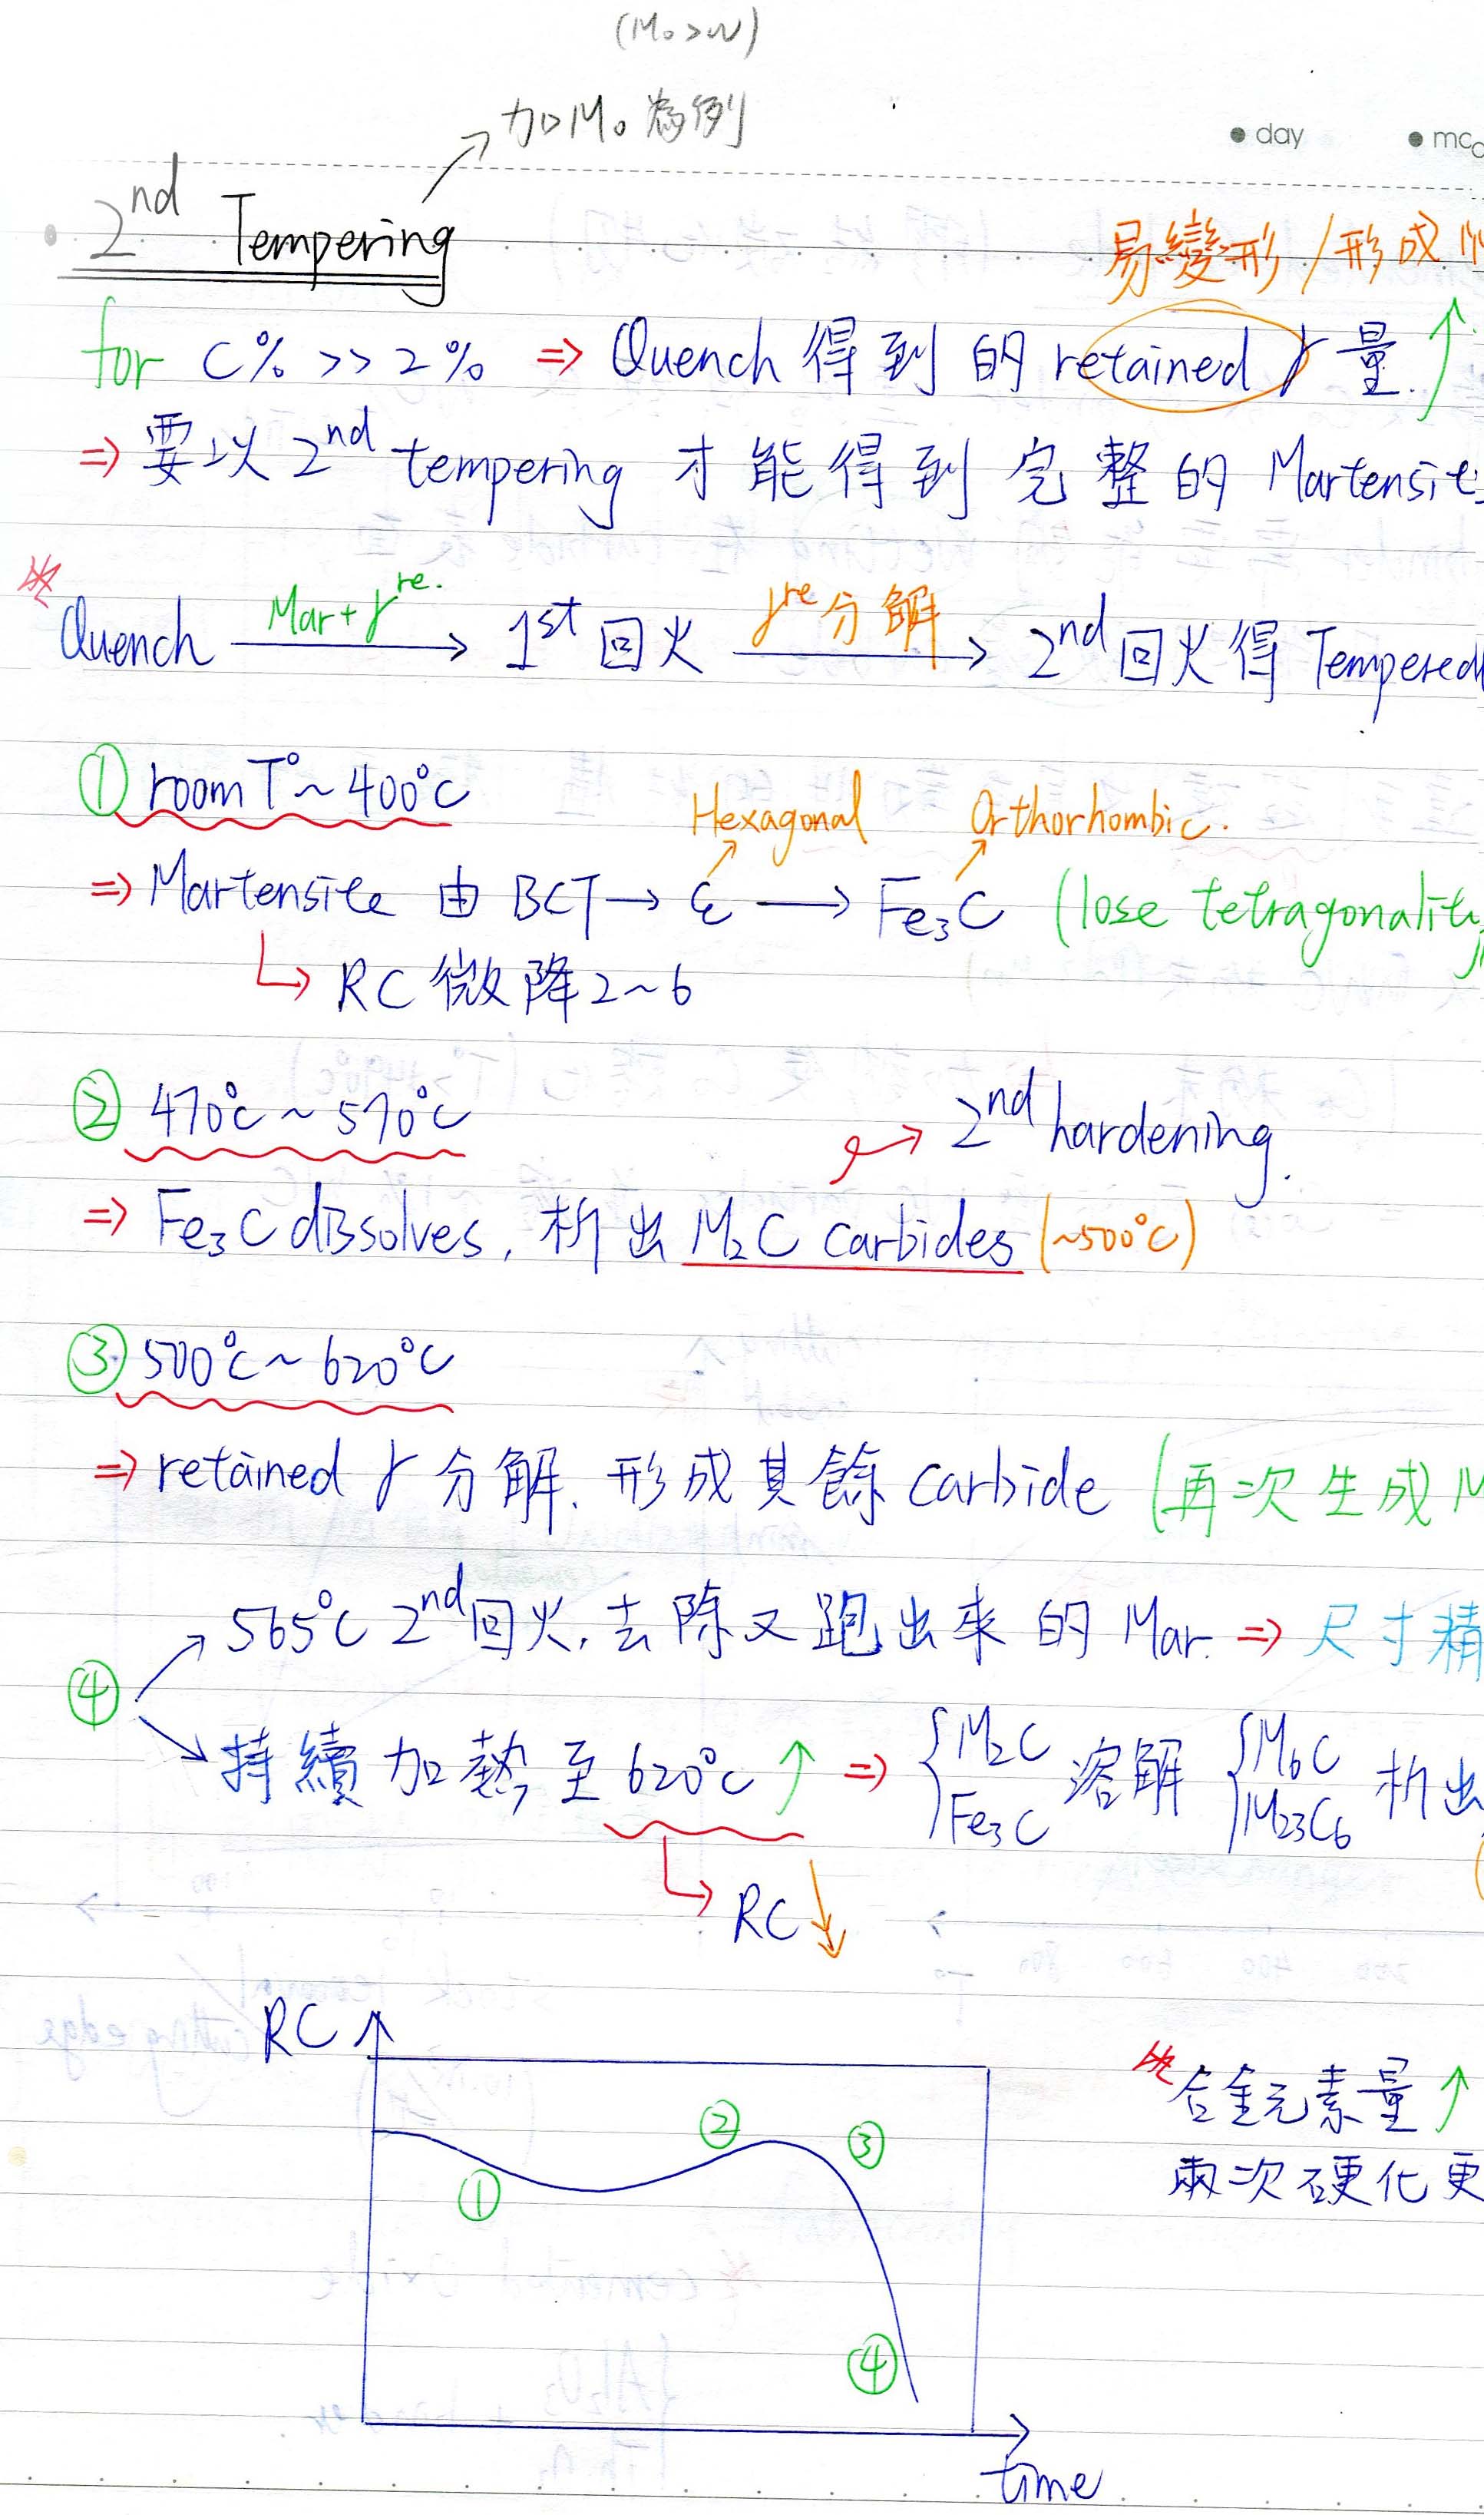 (Mo > W)
加Mo為例
day mo
2nd Tempering
易變形/形成
for C% >> 2% ⇒ Quench 得到的 retained γ 量 ↑
⇒ 要以 2nd tempering 才能得到完整的 Martensite
Quench Mar+γre. → 1st 回火 γre分解 → 2nd 回火得 Tempered
① room T°~400°C
Hexagonal Orthorhombic.
⇒ Martensite 由 BCT → ε → Fe3C (lose tetragonality
↳ RC 微降2~6
② 470°C ~ 570°C
→ 2nd hardening.
⇒ Fe3C dissolves, 析出 M2C carbides (~500°C)
③ 500°C ~ 620°C
⇒ retained γ 分解. 形成其餘 carbide (再次生成 M
565°C 2nd回火, 去除又跑出來的 Mar. ⇒ 尺寸精
④
持續加熱至 620°C ↑ ⇒ {M2C Fe3C 溶解 {M6C M23C6 析出
↳ RC ↓
RC
合金元素量 ↑
兩次硬化更
① ② ③ ④
time